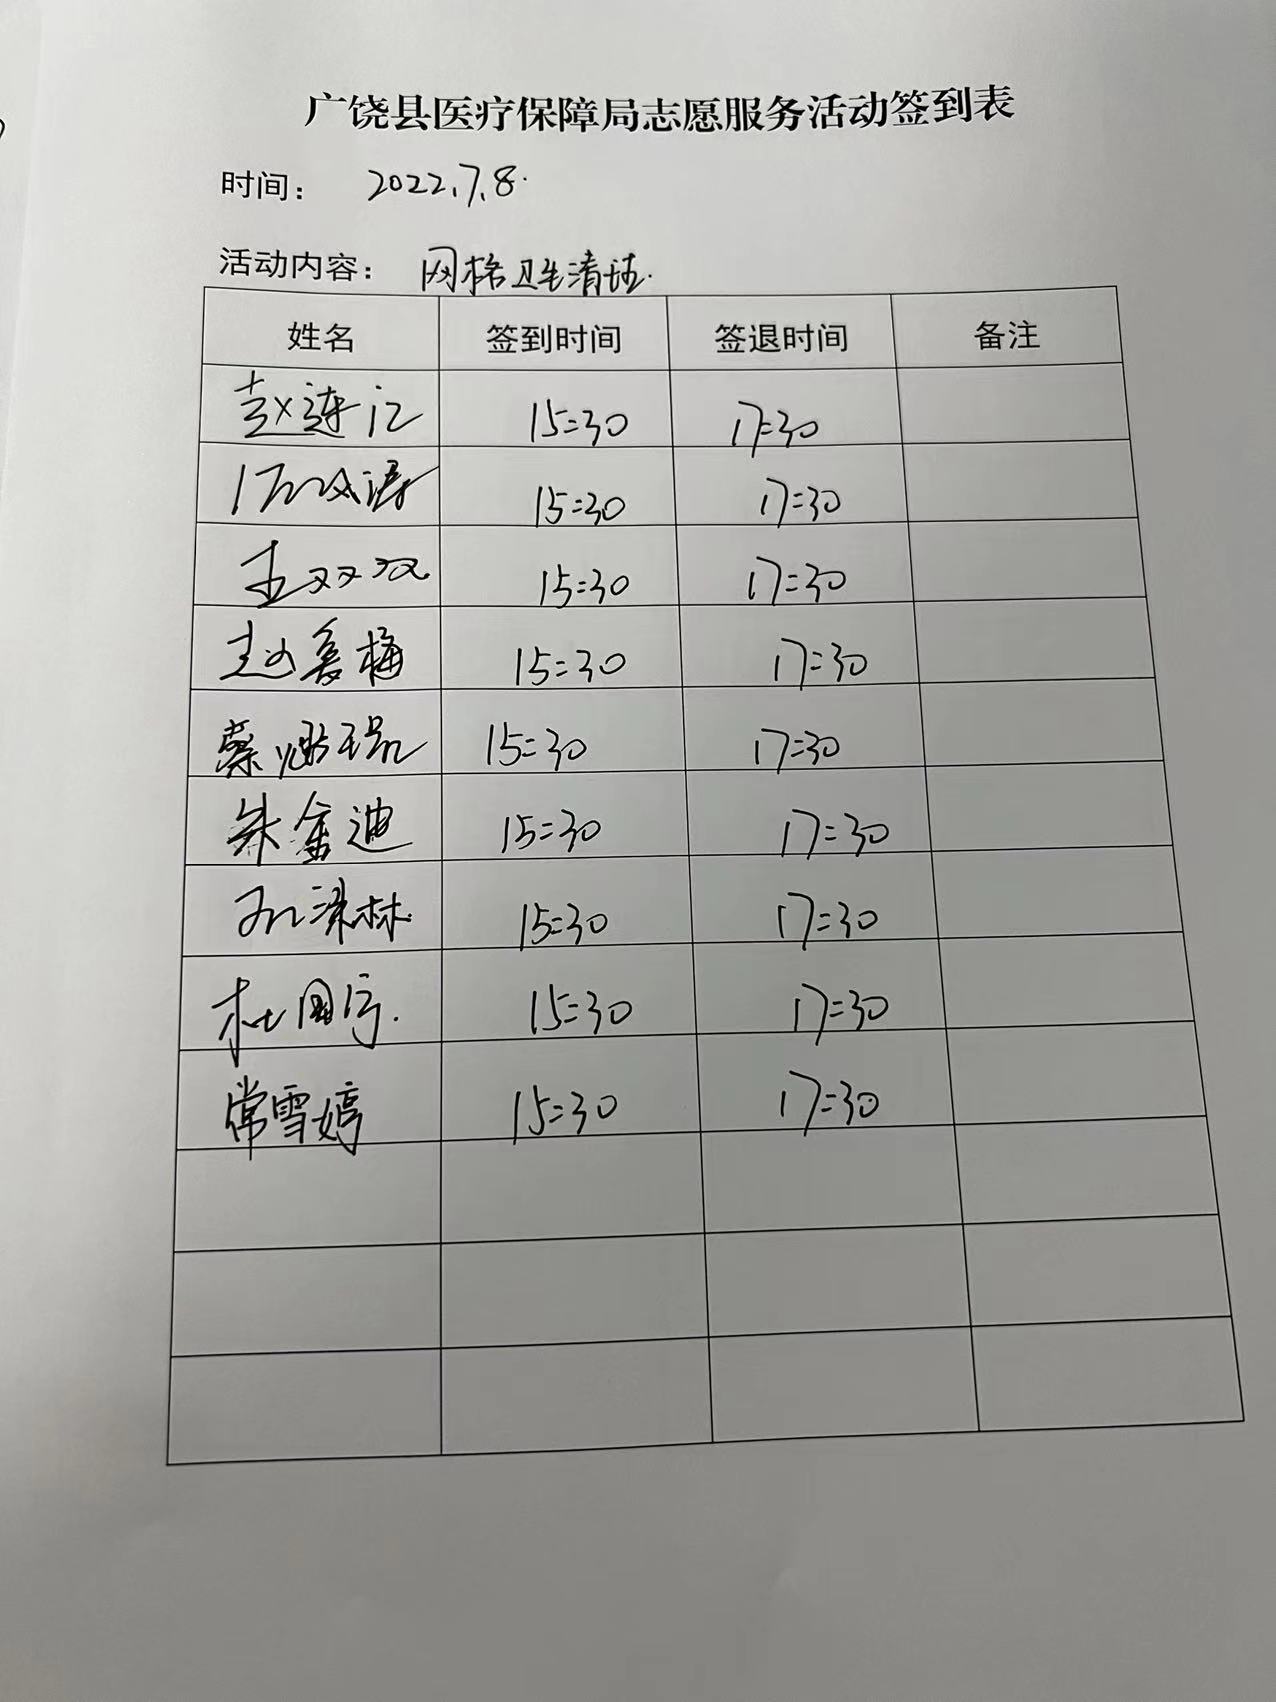 广饶县医疗保障局志愿服务活动签到表
时间： 2022.7.8.
活动内容： 网格卫生清洁.
姓名 签到时间 签退时间 备注
赵连江 15:30 17:30
15:30 17:30
王双双 15:30 17:30
赵喜梅 15:30 17:30
綦 15:30 17:30
朱金迪 15:30 17:30
孙 林 15:30 17:30
杜国 15:30 17:30
常雪婷 15:30 17:30